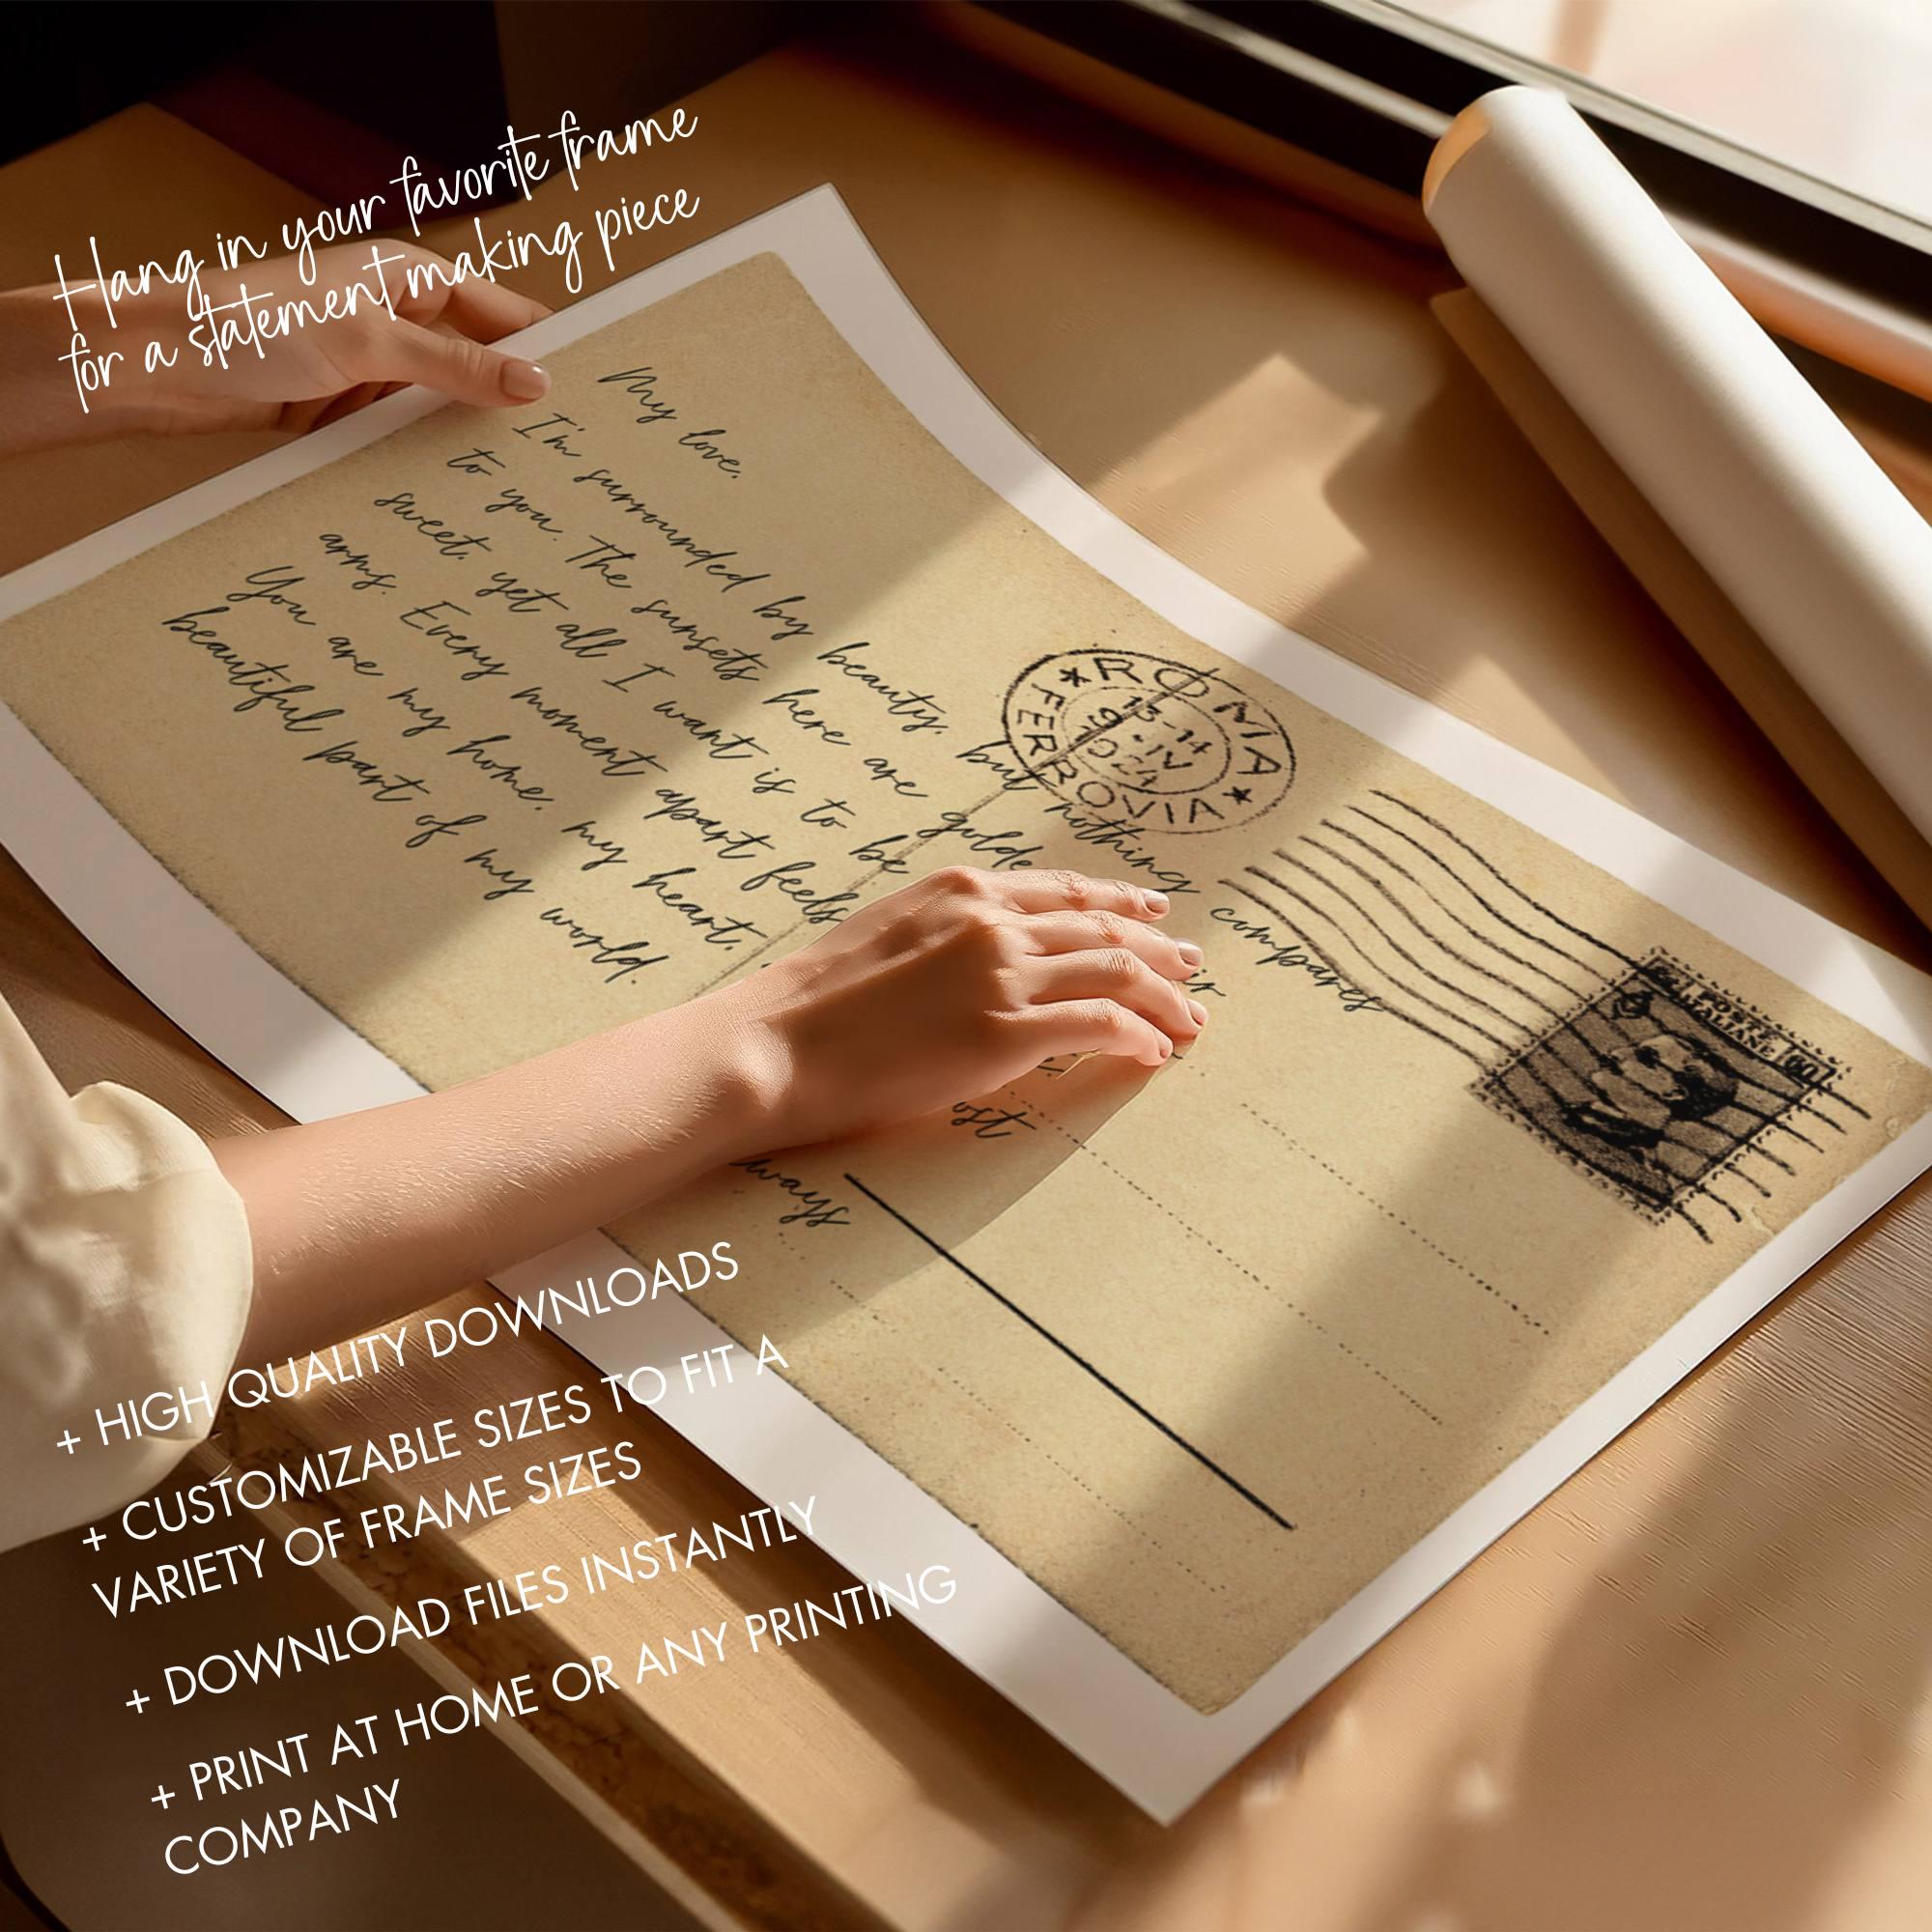 Hang in your favorite frame
for a statement making piece
My love,
I'm surrounded by beauty, but nothing compares
to you. The sunsets here are golde
sweet, yet all I want is to be
arms. Every moment apart feels
You are my home, my heart,
beautiful part of my world.
ROMA
FERROVIA
13-14
9·IV
1924
POSTE
ITALIANE
60
+ HIGH QUALITY DOWNLOADS
+ CUSTOMIZABLE SIZES TO FIT A
VARIETY OF FRAME SIZES
+ DOWNLOAD FILES INSTANTLY
+ PRINT AT HOME OR ANY PRINTING
COMPANY